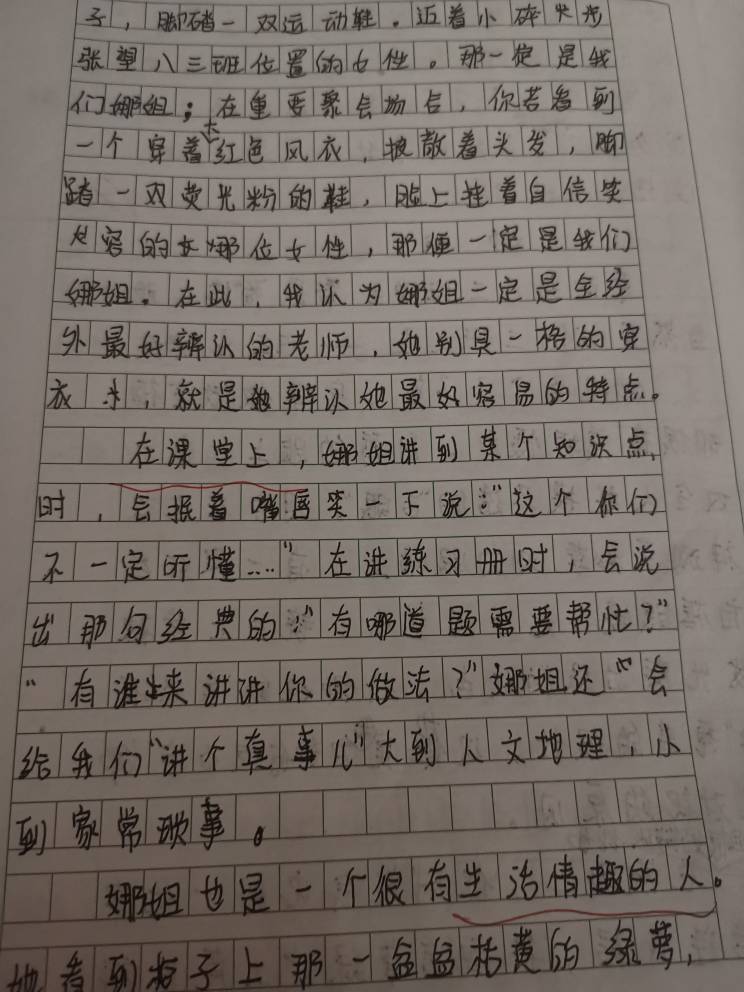 子，脚踏一双运动鞋。迈着小碎步
张望八三班位置的女性。那一定是我
们娜姐；在重要聚会场合，你若看到
一个穿着大红色风衣，披散着头发，脚
踏一双荧光粉的鞋，脸上挂着自信笑
容的那位女性，那便一定是我们
娜姐。在此，我认为娜姐一定是全经
外最好辨认的老师，她别具一格的穿
衣，就是辨认她最容易的特点。
在课堂上，娜姐讲到某个知识点
时，会抿着嘴唇笑一下说："这个你们
不一定听懂…."在讲练习册时，会说
出那句经典的："有哪道题需要帮忙？"
"有谁来讲讲你的做法？"娜姐还"会
给我们"讲个真事儿"大到人文地理，小
到家常琐事。
娜姐也是一个很有生活情趣的人。
她看到柜子上那一盆盆枯黄的绿萝，